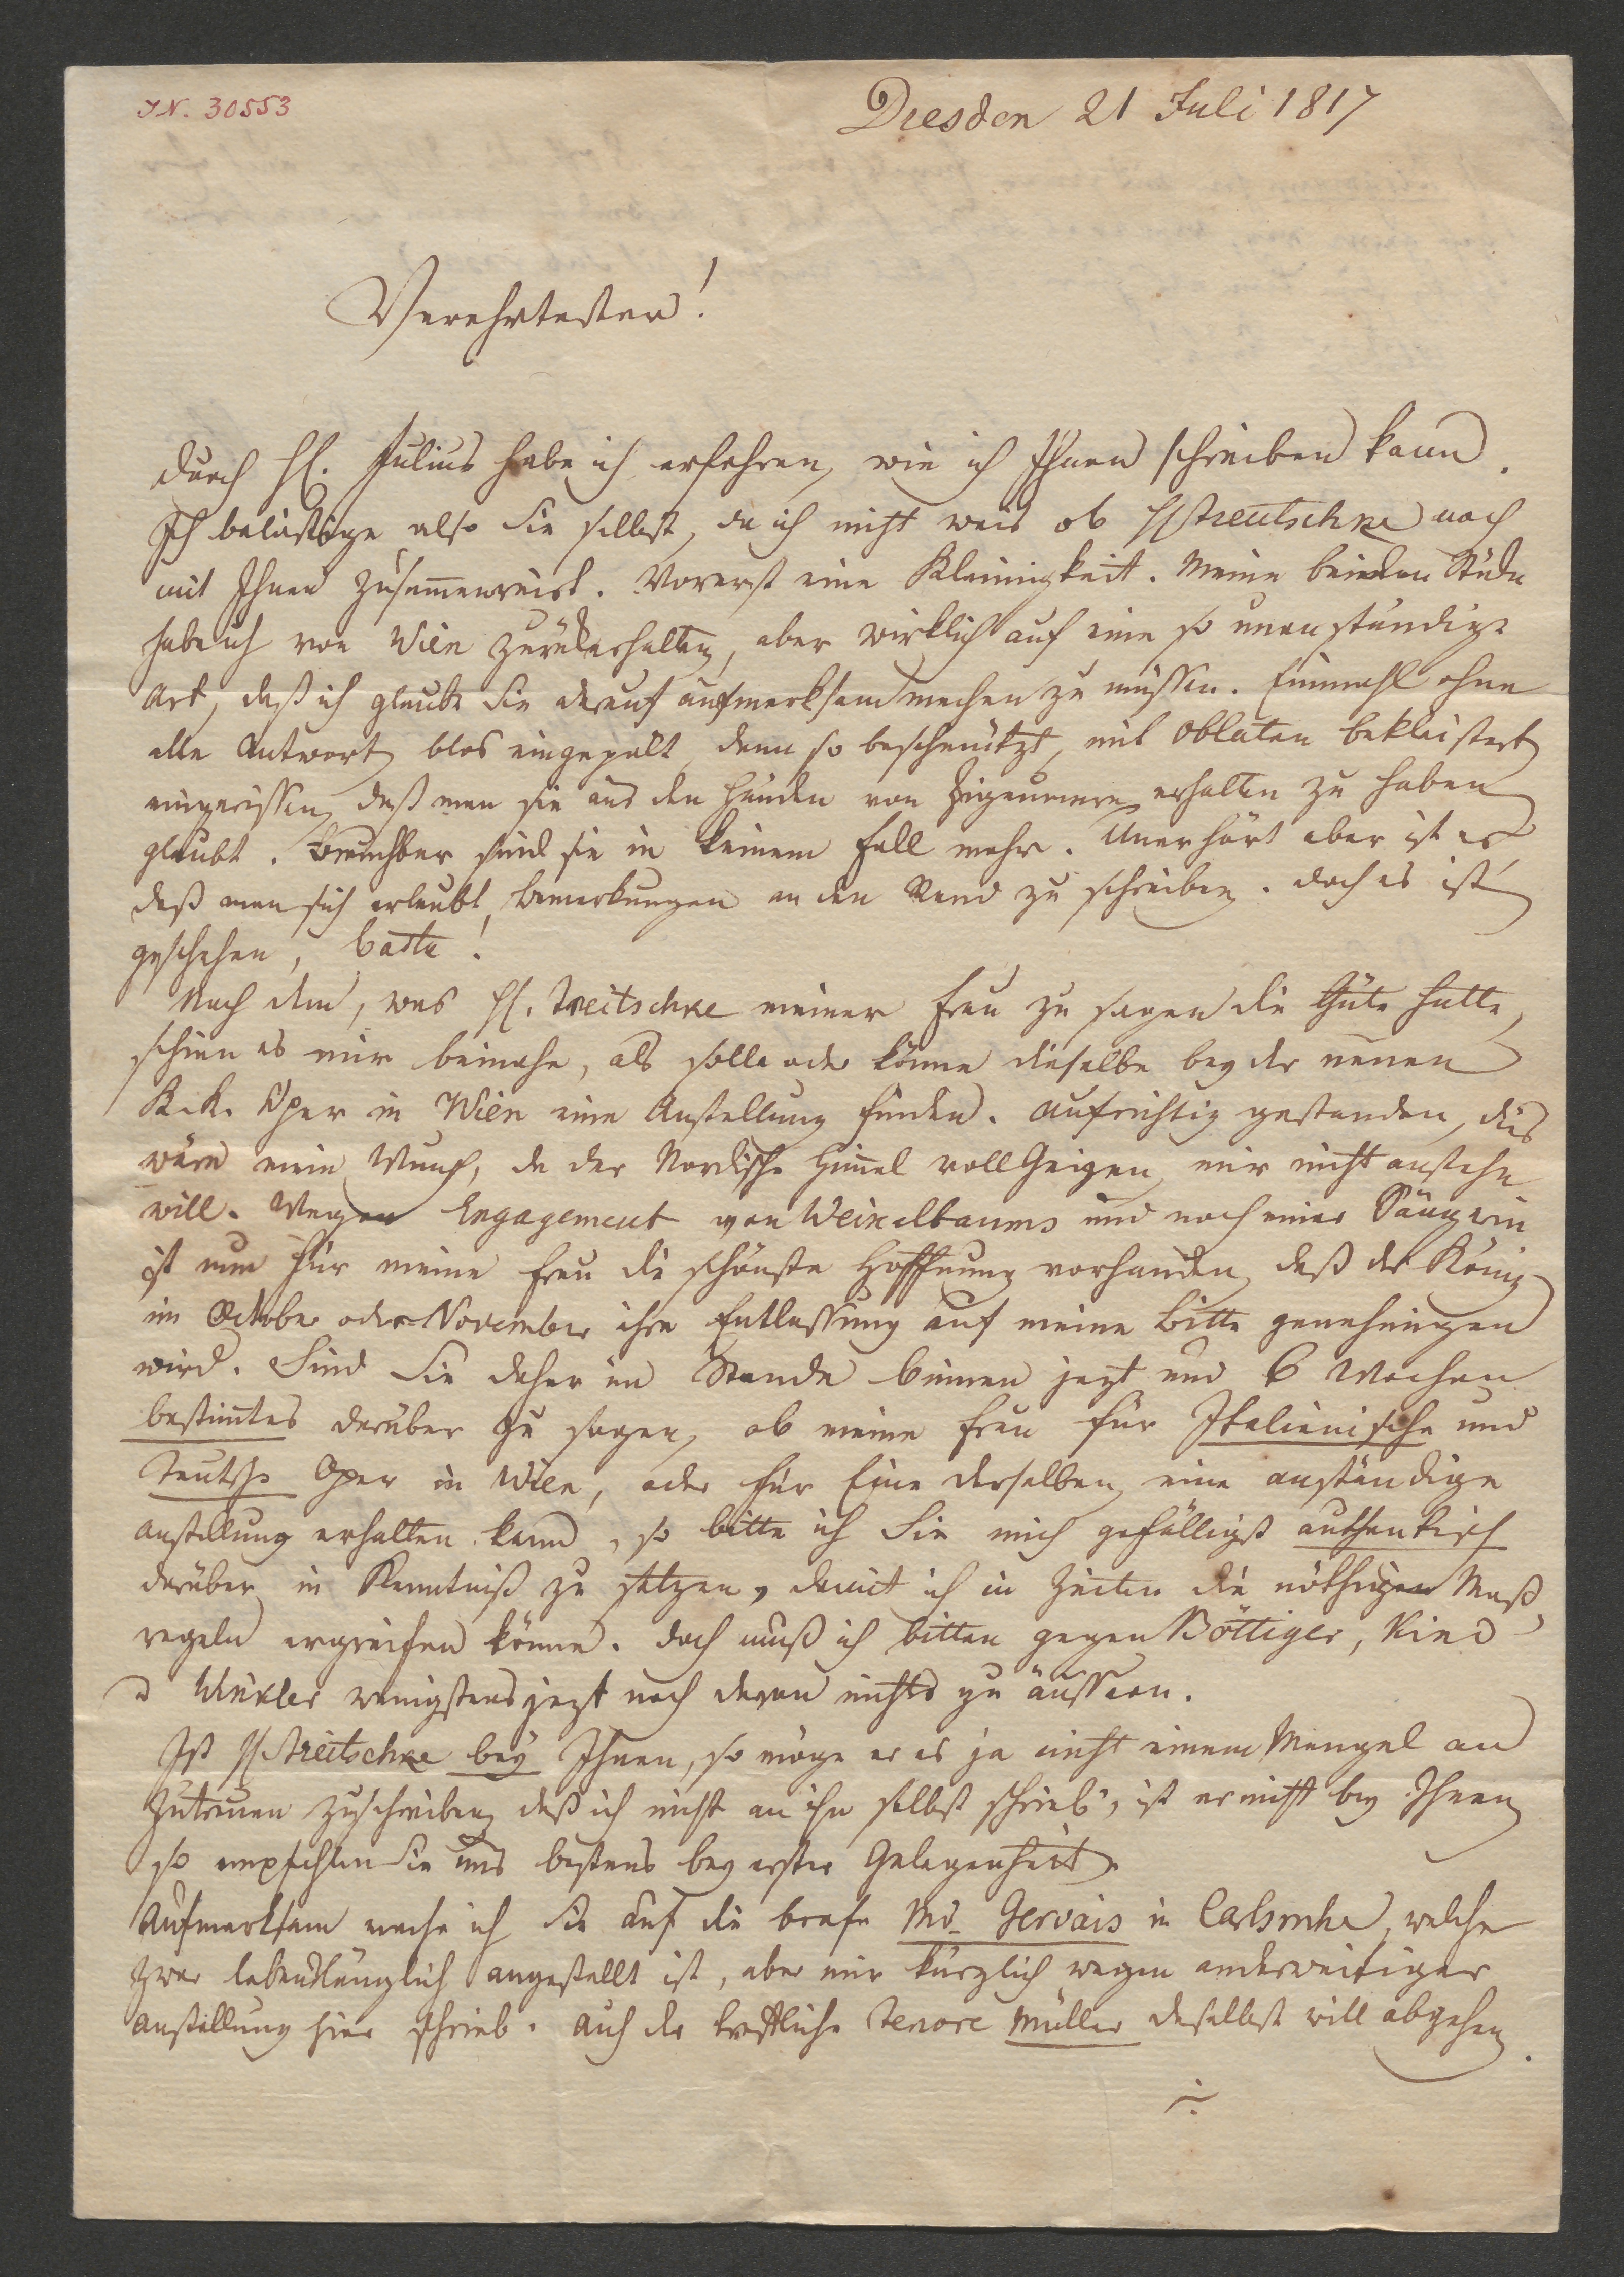 IN. 30553
Dresden 21 Juli 1817
Verehrtester!
durch H. Julius habe ich erfahren, wie ich Ihnen schreiben kann.
Ich belästige also Sie selbst, da ich nicht weis ob H Treutschke noch
mit Ihnen zusam̄enreist. Vorerst eine Kleinigkeit. Meine beiden Stüke
habe ich von Wien zurükerhalten, aber wirklich auf eine so unanständige
Art, daß ich glaube Sie darauf aufmerksam machen zu müssen. Einmahl ohne
alle Antwort, blos eingepakt, dann so beschmützt, mit Oblaten bekleistert
eingerissen, daß man sie aus den Händen von Zigeunern erhalten zu haben
glaubt. Brauchbar sind sie in keinem Fall mehr. Unerhört aber ist es
daß man sich erlaubt, Bemerkungen an den Rand zu schreiben. doch es ist
geschehen, basta!
Nach dem, was H. Treitschke meiner Frau zu sagen die Güte hatte,
schien es mir beinahe, als solle oder könne dieselbe bey der neuen
K. K. Oper in Wien eine Anstellung finden. Aufrichtig gestanden, dies
wäre mein Wunsch, da der Nordische Him̄el voll Geigen, mir nicht anstehn
will. Wegen Engagement von Weixelbaums und noch einer Sängerin
ist nun für meine Frau die schönste Hoffnung vorhanden, daß der König
im October oder November ihre Entlassung auf meine Bitte genehmigen
wird. Sind Sie daher im Stande binnen jezt und 6 Wochen
bestim̄tes darüber zu sagen, ob meine Frau für Italienische und
Teutsche Oper in Wien, oder für Eine derselben, eine anständige
Anstellung erhalten kann, so bitte ich Sie mich gefälligst authentisch
darüber in Kenntniß zu setzen, damit ich in Zeiten die nöthigen Maß
regeln ergreifen könne. doch muß ich bitten gegen Böttiger, Kind
u Winkler wenigstens jezt noch davon nichts zu äussern.
Ist H Treitschke bey Ihnen, so möge er es ja nicht einem Mangel an
Zutrauen zuschreiben, daß ich nicht an ihn selbst schrieb, ist er nicht bey Ihnen
so empfehlen Sie uns bestens bey erster Gelegenheit.
Aufmerksam mache ich Sie auf die brafe Md. Gervais in Carlsruhe, welche
zwar lebenslänglich angestellt ist, aber mir kürzlich wegen anderweitiger
Anstellung hier schrieb. Auch der trefliche Tenore Müller daselbst will abgehen.